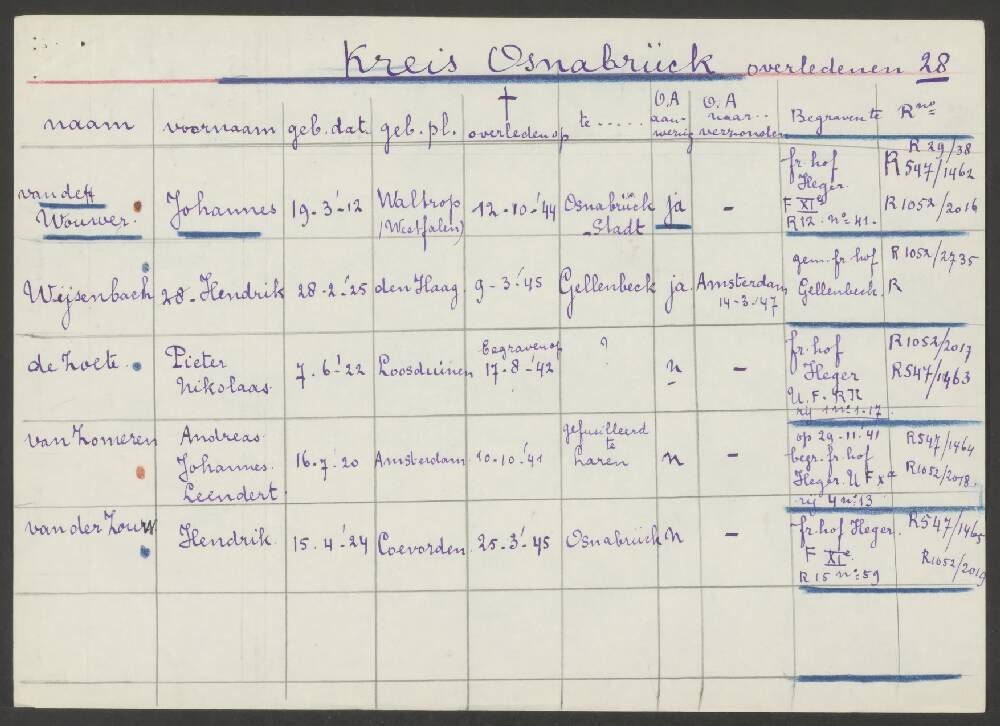 Kreis Osnabrück overledenen 28
naam voornaam geb. dat. geb. pl. † overleden op te ..... O.A aanwezig O.A naar.. verzonden Begraven te R no
van deff Wouwer.
Johannes
19-3-'12
Waltrop
(Westfalen)
12-10-'44
Osnabrück
-Stadt
ja
-
fr. hof
Heger.
F XI a
R12. no 41.
R 29/38
R547/1462
R1052/2016
Wijsenbach
28-Hendrik
28-2-'25
den Haag.
9-3-'45
Gellenbeck
ja.
Amsterdam
14-3-'47
gem. fr. hof
Gellenbeck.
R1052/2735
R
de Zoete.
Pieter
Nikolaas.
7.6-'22
Loosduinen
Begraven op
17-8-'42
?
n
-
fr. hof
Heger
U. F. RK
rij 1 no 1.17.
R1052/2017
R547/1463
van Zomeren
Andreas
Johannes.
Leendert.
16-7-'20
Amsterdam.
10-10-'41
gefusilleerd
te
Laren
n
-
op 29-11-'41
begr. fr. hof
Heger. U F x a
rij 4 no 13
R547/1464
R1052/2018.
van der Zouw
Hendrik.
15.4-'24
Coevorden.
25-3-'45
Osnabrück
n
-
fr. hof Heger.
F XI e.
R15 no 59
R547/1465
R1052/2019